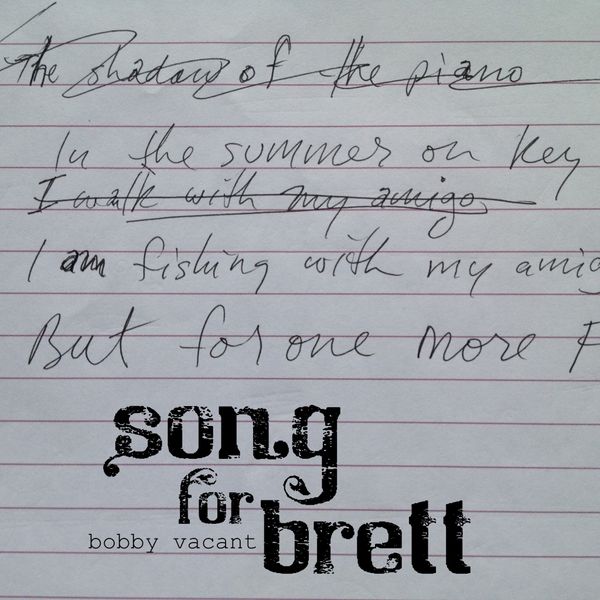 The shadow of the piano
In the summer on key
I walk with my amigo
I am fishing with my amig
But for one more F
song
for
brett
bobby vacant